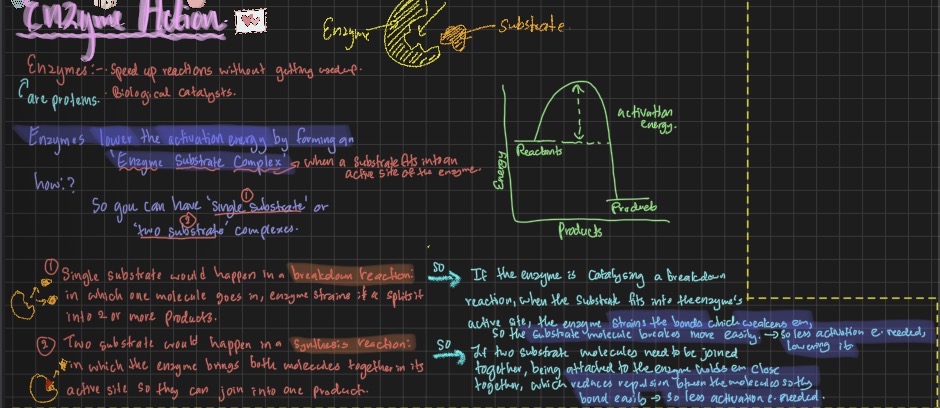 Enzyme Action
Enzyme
Substrate
Enzymes:- · Speed up reactions without getting used up.
are proteins. · Biological catalysts.
Enzymes lower the activation energy by forming an
'Enzyme Substrate Complex' → when a substrate fits into an
active site of the enzyme.
how:?
So you can have 'single substrate' or
①
②
'two substrate' complexes.
activation
energy.
Reactants
Energy
Products
Products
① Single substrate would happen in a breakdown reaction:
in which one molecule goes in, enzyme strains it & splits it
into 2 or more products.
② Two substrate would happen in a synthesis reaction:
in which the enzyme brings both molecules together in its
active site so they can join into one product.
so
If the enzyme is catalysing a breakdown
reaction, when the substrate fits into the enzyme's
active site, the enzyme strains the bonds which weakens em,
so the substrate molecule breakes more easily. → so less activation e. needed,
lowering it.
so
If two substrate molecules need to be joined
together, being attached to the enzyme holds em close
together, which reduces repulsion btwen the molecules so they
bond easily → so less activation e. needed.